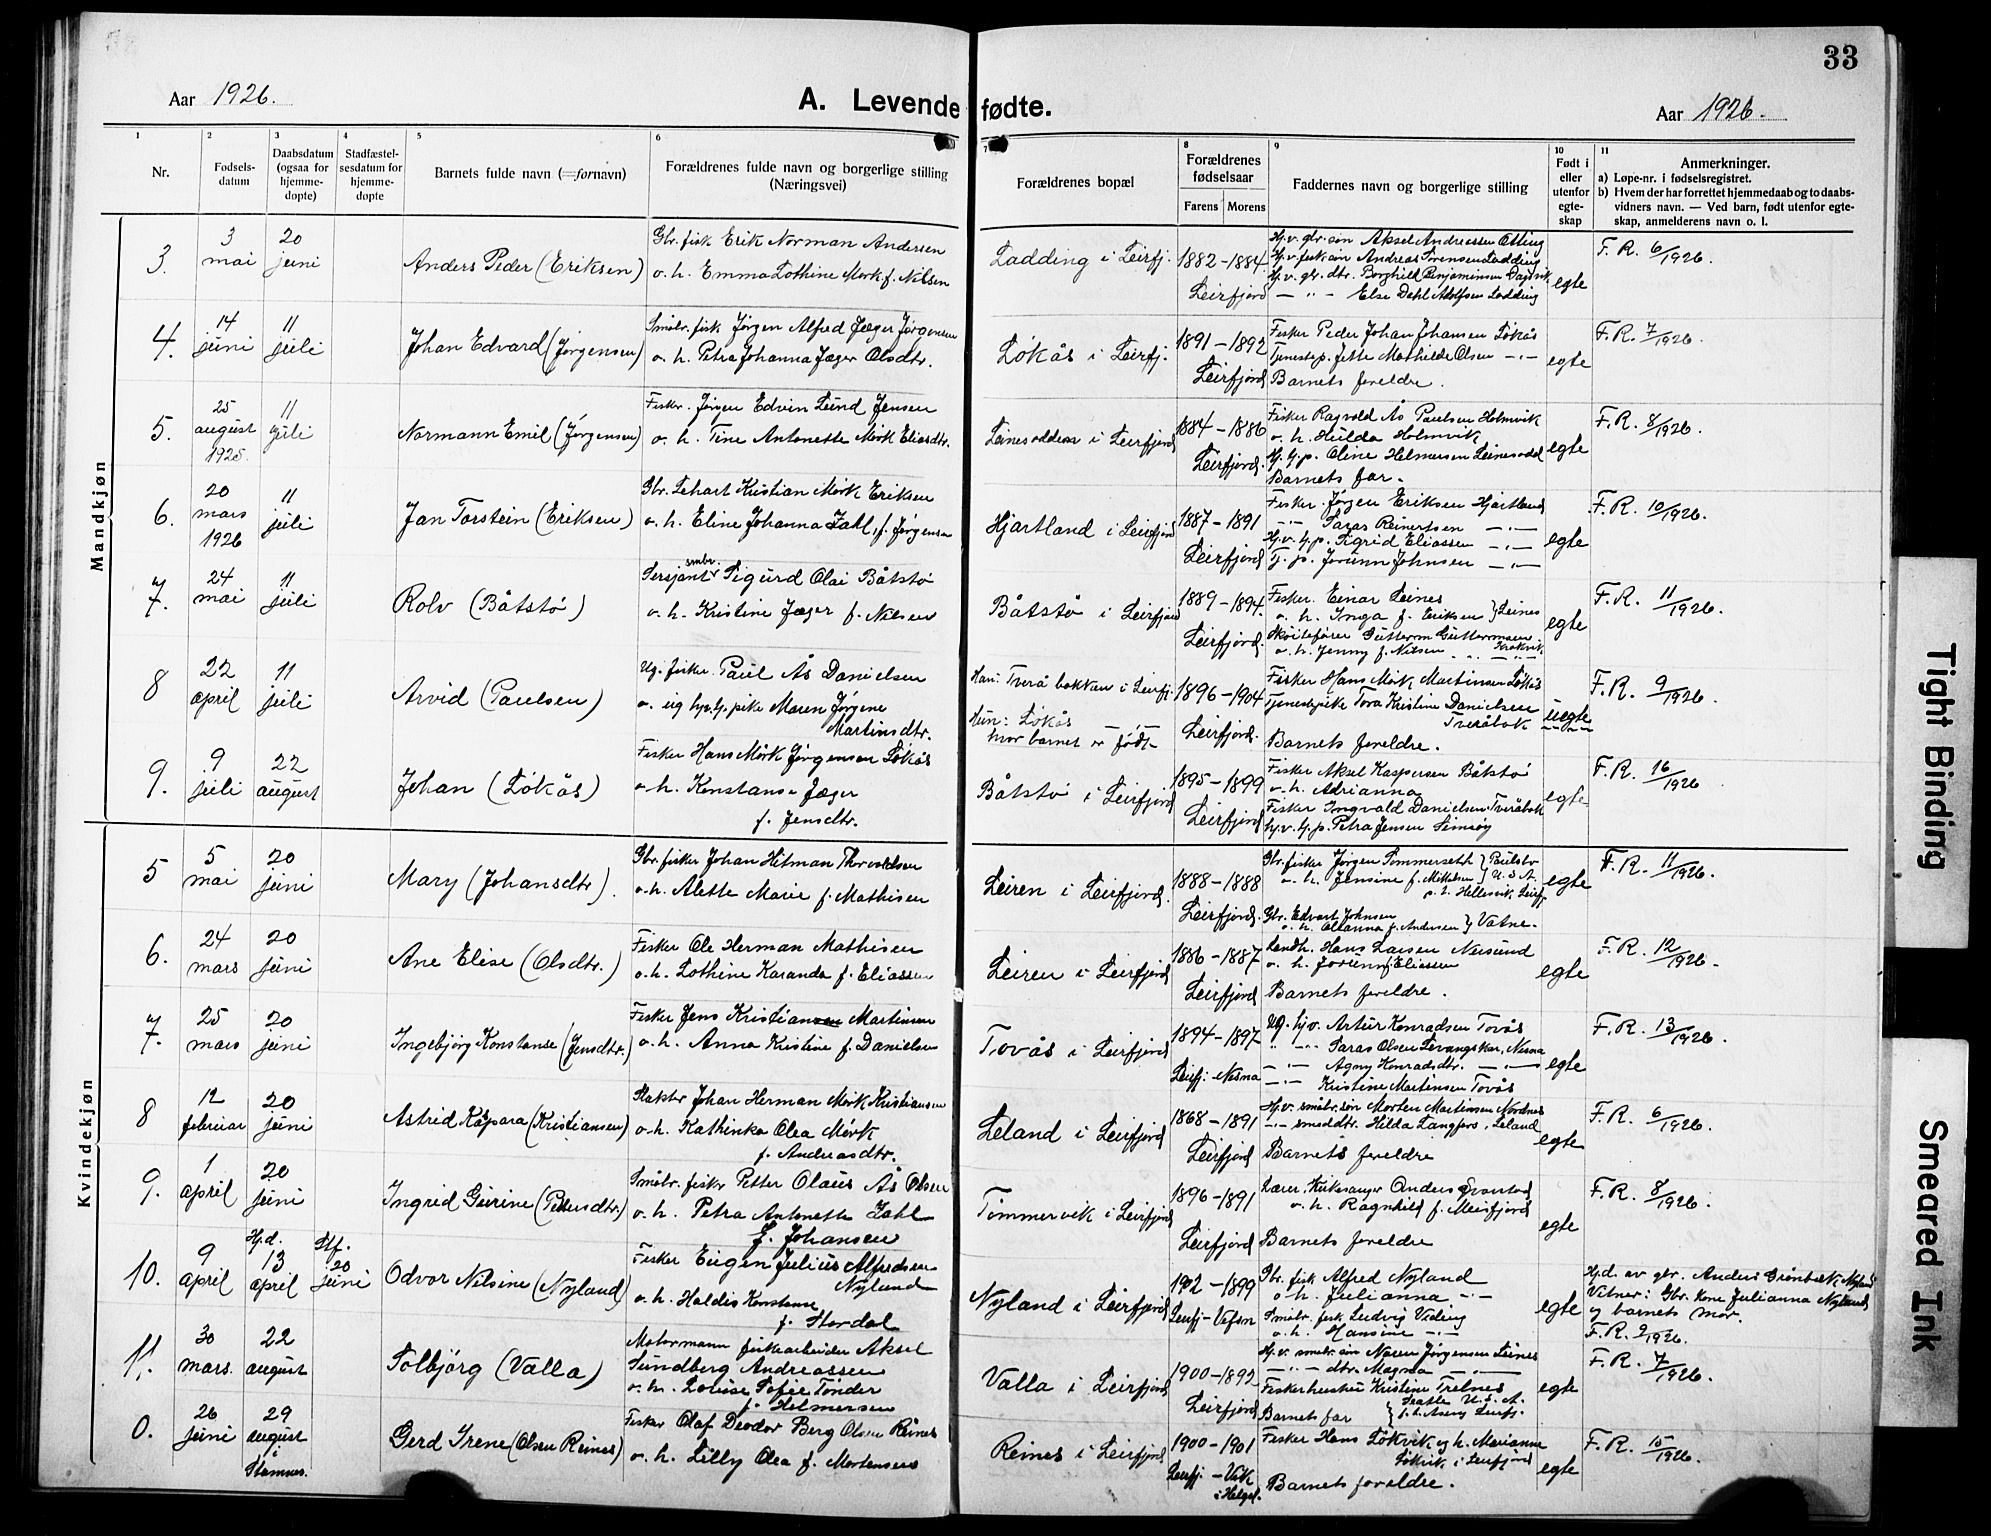 33
Aar 1926.
A. Levende fødte.
Aar 1926.
1 2 3 4 5 6 7 8 9 10 11
Nr.
Fødsels-
datum
Daabsdatum
(ogsaa for
hjemme-
døpte)
Stadfæstel-
sesdatum for
hjemme-
døpte
Barnets fulde navn (=fornavn)
Forældrenes fulde navn og borgerlige stilling
(Næringsvei)
Forældrenes bopæl
Forældrenes
fødselsaar
Farens Morens
Faddernes navn og borgerlige stilling
Født i
eller
utenfor
egte-
skap
Anmerkninger.
a) Løpe-nr. i fødselsregistret.
b) Hvem der har forrettet hjemmedaab og to daabs-
vidners navn. — Ved barn, født utenfor egte-
skap, anmelderens navn o. l.
Mandkjøn
3.
3
mai
20
juni
Anders Peder (Eriksen)
Gbr. fisk Erik Norman Andersen
o. h. Emma Lothine Mork f. Nilsen
Ladding i Leirfj.
1882 - 1884
Leirfjord
Hj.v. gbr. søn Aksel Andreassen Otting
Hj.v. fisk søn Andreas Ladding
Hj.v. gbr. dtr. Borghild Benjaminsen Dagsvik
— " — Else Dahl Adolfsen Ladding
egte
F. R. 6/1926.
4.
14
juni
11
juli
Johan Edvard (Jørgensen)
Småbr. fisk Jørgen Alfred Jæger Jørgensen
o. h. Petra Johanna Jæger Olsdtr.
Løkås i Leirfj.
1891 - 1892
Leirfjord
Fisker Peder Johan Johansen Løkås
Tjenestep. Jette Mathilde Olsen — " —
Barnets foreldre.
egte
F. R. 7/1926.
5.
25
august
1925.
11
juli
Normann Emil (Jørgensen)
Fisker. Jørgen Edvin Lund Jensen
o. h. Tine Antonette Mørk Eliasdtr.
Leinesodden i Leirfjord
1884 - 1886
Leirfjord.
Fisker Ragvald Ås Paulsen Holmvik
o. h. Hulda Holmvik
Hj. hj. p. Oline Helmersen Leinesodd
Barnets far.
egte
F. R. 8/1926.
6.
20
mars
1926
11
juli
Jan Torstein (Eriksen)
Gbr. Lehart Kristian Mørk Eriksen
o. h. Eline Johanna Zahl, f. Jørgensen
Hjartland i Leirfjord
1887 - 1891
Leirfjord.
Fisker Jørgen Eriksen Hjartland
— " — Saras Reinertsen — " —
Hj.v. hj. p. Sigrid Eliassen — " —
Tj. p. Jorunn Johnsen — " —
egte
F. R. 10/1926.
7.
24
mai
11
juli
Rolv (Båtstø)
smbr.
Sersjant Sigurd Olai Båtstø
o. h. Kristine Jæger f. Nilsen
Båtstø i Leirfjord
1889 - 1894.
Leirfjord.
Fisker. Einar Leines
o. h. Inga f. Eriksen } Leines
Skøitefører Gutterm Guttormsen
o. h. Jenny f. Nilsen
egte
F. R. 11/1926.
8
22
april
11
juli
Arvid (Paulsen)
Ug. fisker. Paul Ås Danielsen
o. ug hjv. hj. pike Maren Jørgine
Martinsdtr.
Han: Tverå bakken i Leirfj.
Hun: Løkås
hvor barnet er født
1896 - 1904
Leirfjord.
Fisker Hans Mørk Martinsen Løkås
Tjenestepike Tora Kristine Danielsen
Tveråbak
Barnets foreldre.
uegte
F. R. 9/1926.
9.
9
juli
22
august
Johan (Løkås)
Fisker Hans Mørk Jørgensen Løkås
o. h. Konstanse Jæger
f. Jensdtr.
Båtstø i Leirfjord
1895 - 1899
Leirfjord.
Fisker Aksel Kaspersen Båtstø
o. h. Adrianna
Fisker Ingvald Danielsen Tveråbak
hj.v. hj. p. Petra Jensen Simsøy
egte
F. R. 16/1926
Kvindekjøn
5
5
mai
20
juni
Mary (Johansdtr).
Gbr. fisker Johan Hitman Thorvaldsen
o. h. Alette Marie f. Mathisen
Leiren i Leirfjord.
1888 - 1888
Leirfjord.
Gbr. fisker Jørgen Sommerseth } Paulsbo
o. h. Jensine f. Mikkelsen } U. S. A.
p. t. Hellesvik Leirfj.
Gbr. Edvart Johnsen
o. h. Olianna f. Andersen } Vatne.
egte
F. R. 11/1926.
6.
24
mars
20
juni
Ane Elise (Olsdtr.)
Fisker Ole Herman Mathisen
o. h. Lothine Karanda f. Eliassen
Leiren i Leirfjord
1886 - 1887
Leirfjord
Landh. Hans Larsen Nesund
o. h. Jorunn f. Eliassen
Barnets foreldre.
egte
F. R. 12/1926.
7.
25
mars
20
juni
Ingebjørg Konstanse (Jensdtr.)
Fisker Jens Kristiansen Martinsen
o. h. Anna Kristine f. Danielsen
Tovås i Leirfjord
1894 - 1897
Leirfj. - Nesna
Ug. hjv. Artur Konradsen Tovås
— " — Saras Olsen Levangskar, Nesna
— " — Agny Konradsdtr. — " —
— " — Kristine Martinsen Tovås
egte
F. R. 13/1926.
8
12
februar
20
juni
Astrid Kaspara (Kristiansen)
Slakter Johan Herman Mørk Kristiansen
o. h. Kathinka Olea Mørk
f. Andreasdtr.
Leland i Leirfjord
1868 - 1891
Leirfjord
Hj.v. småbr. søn Morten Martinsen Nordnes
— " — smeddtr. Hilda Langfors, Leland
Barnets foreldre
egte
F. R. 6/1926.
9.
1
april
20
juni
Ingrid Gurine (Pettersdtr.)
Småbr. fisker Petter Olaus Ås Olsen
o. h. Petra Antonette Zahl
f. Johansen
Tømmervik i Leirfjord
1896 - 1891
Leirfjord
Lærer, Kirkesanger Anders Evanstad
o. h. Ragnhild f. Meisfjord
Barnets foreldre
egte
F. R. 8/1926.
10.
9
april
Hj.d.
13
april
Stf.
20
juni
Odvor Nilsine (Nyland)
Fisker Eugen Julius Alfredsen
Nyland
o. h. Haldis Konstanse
f. Hordal
Nyland i Leirfjord
1902 - 1899
Leirfj - Vefsn
Gbr. fisk Alfred Nyland
o. h. Julianna — " —
Småbr. fisk Ludvig Viding
o. h. Hansine — " —
egte
Hj.d. av gbr. Anders Grønbæk Nyland
Vitner: Gbr. kone Julianna Nyland
og barnets mor.
F. R. 9/1926.
11.
30
mars.
22
august
Solbjørg (Valla)
Motormann fiskearbeider Aksel
Sundberg Andreassen
o. h. Lovise Sofie Tönder
f. Helmersen
Valla i Leirfjord
1900 - 1892
Leirfjord
Hj.v. småbr. søn Noren Jørgensen Leines
— " — dtr. Magna — " —
Fiskerhustru Kristine Trelnes
Seattle U. S. A.
Barnets far } p. t. Leirfj.
egte
F. R. 7/1926.
0.
26
juni
29
august
i
Stamnes.
Gerd Irene (Olsen Reines)
Fisker Olaf Deodor Berg Olsen Reines
o. h. Lilly Olea f. Mortensen
Reines i Leirfjord
1900 - 1901
Leirfj. - Vik
i Helgel.
Fisker Hans Løkvik og h. Marianne
Løkvik i Leirfjord
Barnets foreldre.
egte
F. R. 15/1926.
Tight Binding
Smeared Ink